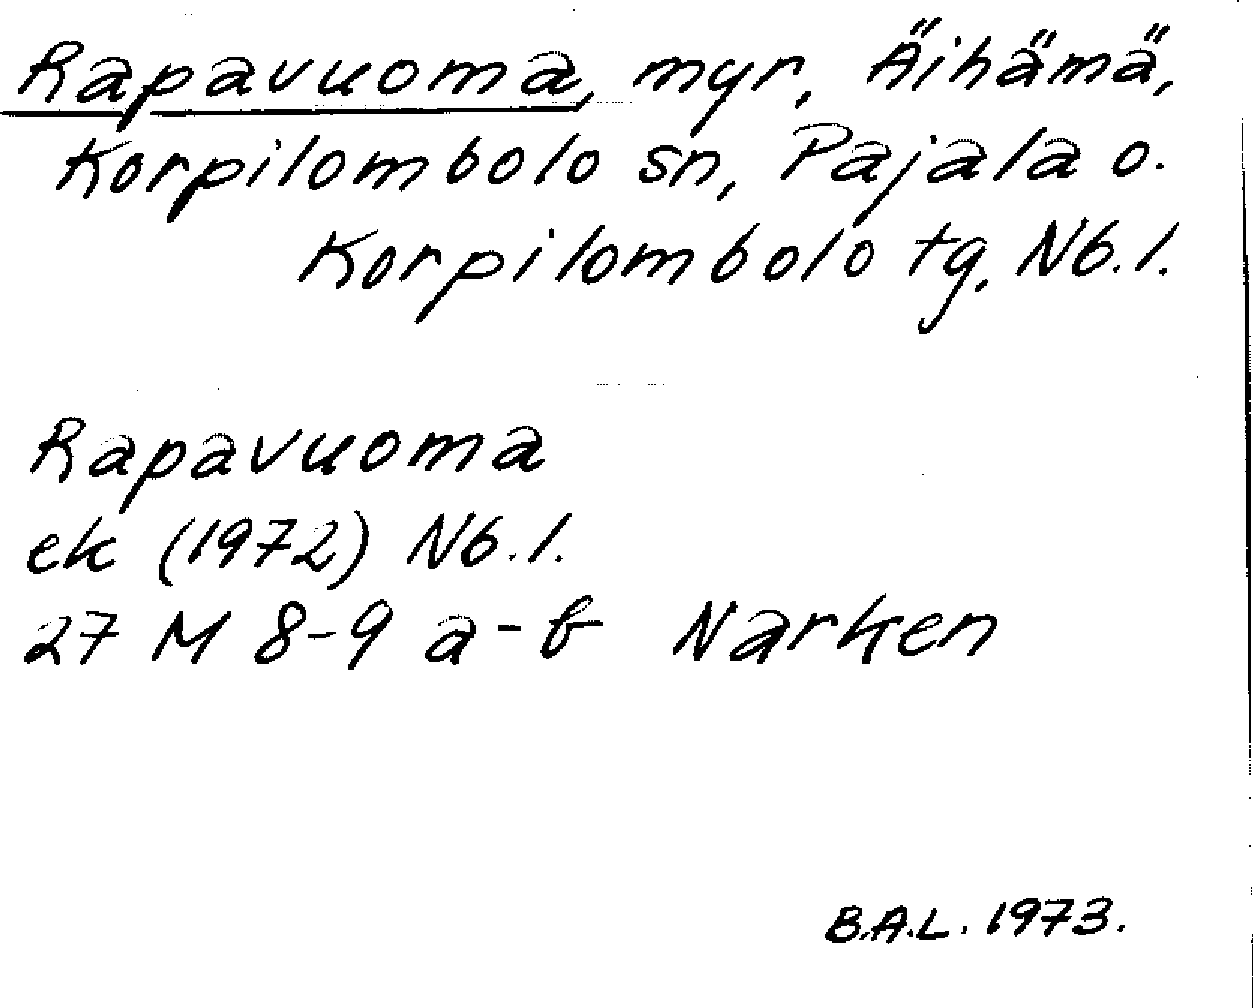 Rapavuoma, myr, Äihämä,
Korpilombolo sn, Pajala o.
Korpilombolo tg, Nb.l.
Rapavuoma
ek (1972) Nb.l.
27 M 8-9 a-b Narken
B.A.L. 1973.